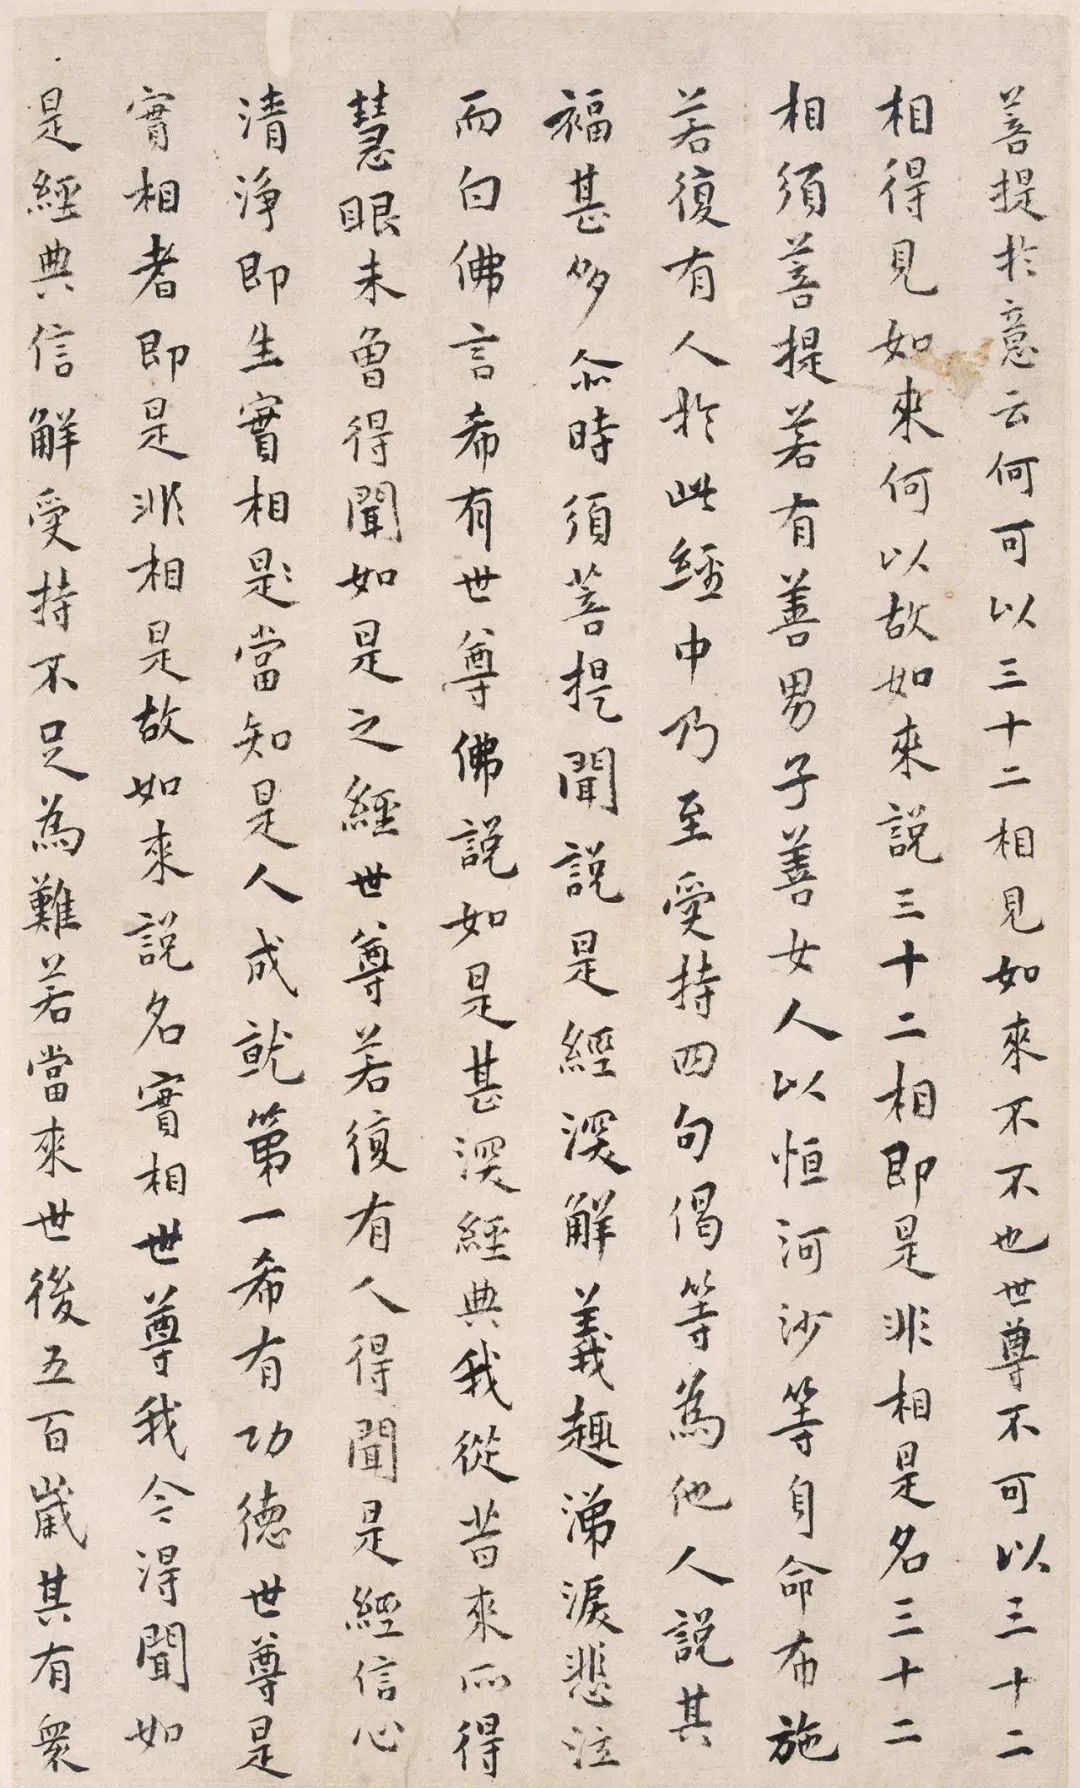 菩提於意云何可以三十二相見如來不不也世尊不可以三十二
相得見如來何以故如來說三十二相即是非相是名三十二
相須菩提若有善男子善女人以恒河沙等身命布施
若復有人於此經中乃至受持四句偈等為他人說其
福甚多尒時須菩提聞說是經深解義趣涕淚悲泣
而白佛言希有世尊佛說如是甚深經典我從昔來所得
慧眼未曾得聞如是之經世尊若復有人得聞是經信心
清淨即生實相是當知是人成就第一希有功德世尊是
實相者即是非相是故如來說名實相世尊我今得聞如
是經典信解受持不足為難若當來世後五百歲其有眾